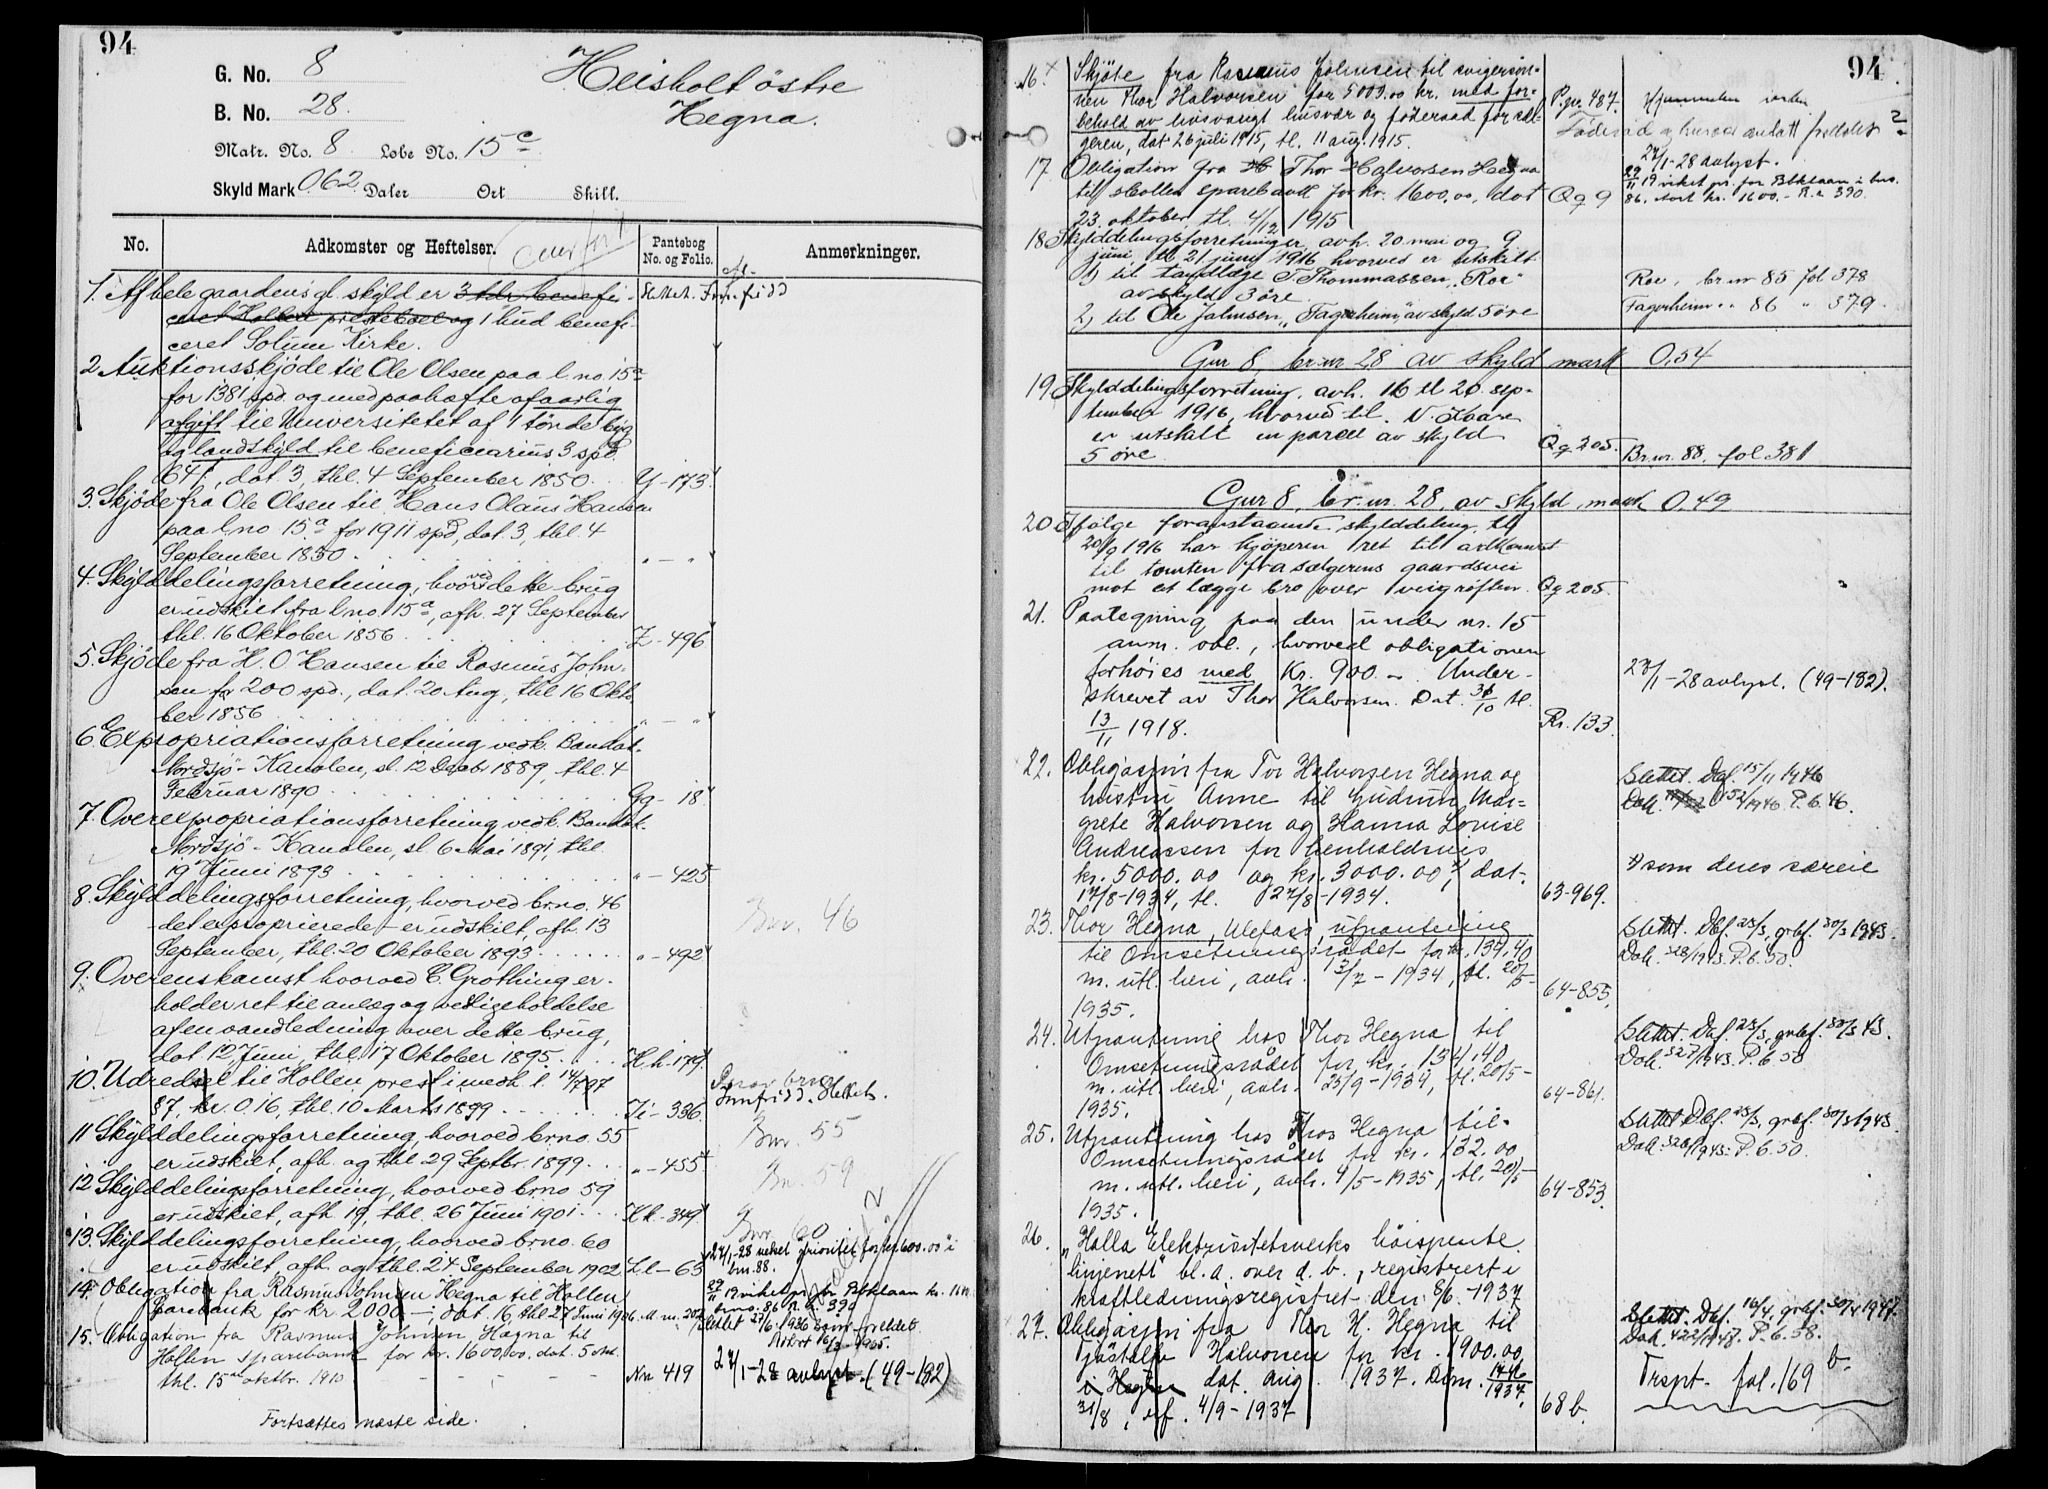 94
G. No. 8
B. No. 28
Matr. No. 8 Løbe No. 15c
Skyld Mark 0.62 Daler Ort Skill.
Heisholt östre
Hegna.
No. Adkomster og Heftelser. Pantebog No. og Folio. Anmerkninger.
1. Af hele gaardens gl. skyld er 3 tdr. benefi-
ceret Hollen prestebol og 1 hud benefi-
ceret Solum Kirke.
2. Auktionsskjöde til Ole Olsen paa l. no. 15a
for 1381 spd. og med paahæfte af aarlig
afgift til Universitetet af 1 tønde byg
og landskyld til beneficiarius 3 spd.
64 f., dat. 3, thl. 4 September 1850. Y-173
3. Skjöde fra Ole Olsen til Hans Olaus Hansen
paa l. no 15a for 1911 spd, dat. 3, thl. 4
September 1850. " - "
4. Skylddelingsforretning, hvorved dette brug
er udskilt fra l. no 15a, afh. 27 September
thl. 16 Oktober 1856. Z-496
5. Skjöde fra H. O. Hansen til Rasmus John-
sen for 200 spd., dat. 20 Aug., thl 16 Okto-
ber 1856 " - "
6. Expropriationsforretning vedk. Bandak-
Nordsjö-Kanalen, sl. 12 Decbr 1889, thl. 4
Februar 1890 Gg-18
7. Overexpropriationsforretning vedk. Bandak-
Nordsjö-Kanalen, sl 6 Mai 1891, thl.
19 Juni 1893 " - 425
8. Skylddelingsforretning, hvorved br.no. 46
- det exproprierede - er udskilt, afh. 13
September, thl. 20 Oktober 1893 " - 492
Bnr. 46
9. Overenskomst hvorved C. Grothing er-
holder ret til anlæg og vedligeholdelse
af en vandledning over dette brug,
dat 12 Juni, thl. 17 Oktober 1895. Hh-179
10. Udredsel til Hollen prest i medh. l. 14/7 97
§7, kr. 0.16, thl. 10 Marts 1899 Ii-336
11 Skylddelingsforretning, hvorved br.no. 55
er udskilt, afh. og thl 29 Septbr. 1899. " - 455
Bnr. 55
12 Skylddelingsforretning, hvorved br.no 59
er udskilt, afh. 19, thl. 26 Juni 1901. Kk-349
Bnr. 59
13. Skylddelingsforretning, hvorved br.no. 60
er udskilt, afh. og thl. 24 September 1902 Ll-63
Bnr. 60
27/1-28 veket prioritet for kr 600.00 i
bnr. 88.
14. Obligation fra Rasmus Johnsen Hegna til Hollen
Sparebank for kr 2000 -, dat. 16, thl 27 Juni 1906. Mm. 202
15. Obligation fra Rasmus Johnsen Hagna til
Hollen sparebank for kr. 1600.00, dat. 5 okt.
thl. 15de oktbr. 1910 Nn 419 27/1-28 avlyst. (49-182)
Fortsættes næste side.
94
16. Skjöte fra Rasmus Johnsen til svigersön-
nen Thor Halvorsen for 5000.00 kr. med for-
behold av livsvarigt husvær og föderaad for sæl-
geren, dat 26 juli 1915, tl. 11 aug. 1915. P.pr. 487.
17 Obligation fra Thor Halvorsen Hegna
til Hollen sparebank for kr. 1600.00, dat
23. oktober, tl. 4/12 1915 Qq 9
27/1-28 avlyst.
18 Skylddelingsforretninger, avh. 20 mai og 9
juni, tl 21 juni 1916 hvorved er utskilt
1) til tandlæge T Thommassen, "Roe"
av skyld 3 öre. Roe, br.nr 85 fol 378
2) til Ole Johnsen, "Fagerheim", av skyld 5 öre Fagerheim " 86 " 379.
Gnr 8, br.nr 28 av skyld mark 0,54
19 Skylddelingsforretning, avh. 16 tl 20. sep-
tember 1916, hvorved til N. Haave
er utskilt en parcel av skyld
5 öre. Qq 205. Br.nr. 88. fol 381
Gnr 8, br.nr. 28, av skyld mark 0,49
20 Ifölge foranstaaende skylddeling, tl
20/9 1916 har kjöperen ret til adkomst
til tomten fra sælgerens gaardsvei
mot at lægge bro over veigröften. Qq 205.
21. Paategning paa den under nr. 15
anm. obl., hvorved obligationen
forhöies med Kr. 900.-. Under-
skrevet av Thor Halvorsen. Dat. 31/10 tl.
13/11 1918. Rr. 133.
27/1-28 avlyst. (49-182).
22. Obligasjon fra Tor Halvorsen Hegna og
hustru Anne til Gudrun Mar-
grete Halvorsen og Hanna Lovise
Andreassen for henholdsvis
kr. 5000.00 og kr. 3000.00 x), dat.
17/8-1934, tl. 27/8-1934. 63-969.
Slettet. Dbf. 15/11 1946
x) som deres særeie
23. Thor Hegna, Ulefoss, utpantning
til Omsetningsrådet for kr. 134,40
m. utl. heri, avh. 12/7-1934, tl. 20/5-
1935. 64-855.
Slettet. Dbf. 28/3, grbf. 30/3 1943.
Dok. 528/1943. P.b. 50.
24. Utpantning hos Thor Hegna til
Omsetningsrådet for kr. 134,40
m. utl. heri, avh. 25/9-1934, tl. 20/5-
1935. 64-861.
Slettet. Dbf. 28/3, grbf. 30/3 43.
Dok. 527/1943. P.b. 50
25. Utpantning hos Thor Hegna til
Omsetningsrådet for kr. 132.00
m. utl. heri, avh. 4/5-1935, tl. 20/5-
1935. 64-853.
Slettet Dbf. 28/3, grbf. 30/3 1943.
Dok. 526/1943. P.b. 50.
26. "Holla Elektrisitetsverks höispente
linjenett" bl. a. over d. b., registrert i
kraftledningsregistret den 8/6-1937
27. Obligasjon fra Thor H. Hegna til
Tjöstolv Halvorsen for kr. 1900.00,
i Hegna dat. aug. 1937. Dnr. 1446/1937.
31/8, grf. 4/9-1937 68 b.
Slettet. Dbf. 16/4, grbf. 30/4 1947.
Dok. 422/1947. P.b. 58.
Trspt. fol. 169 b.